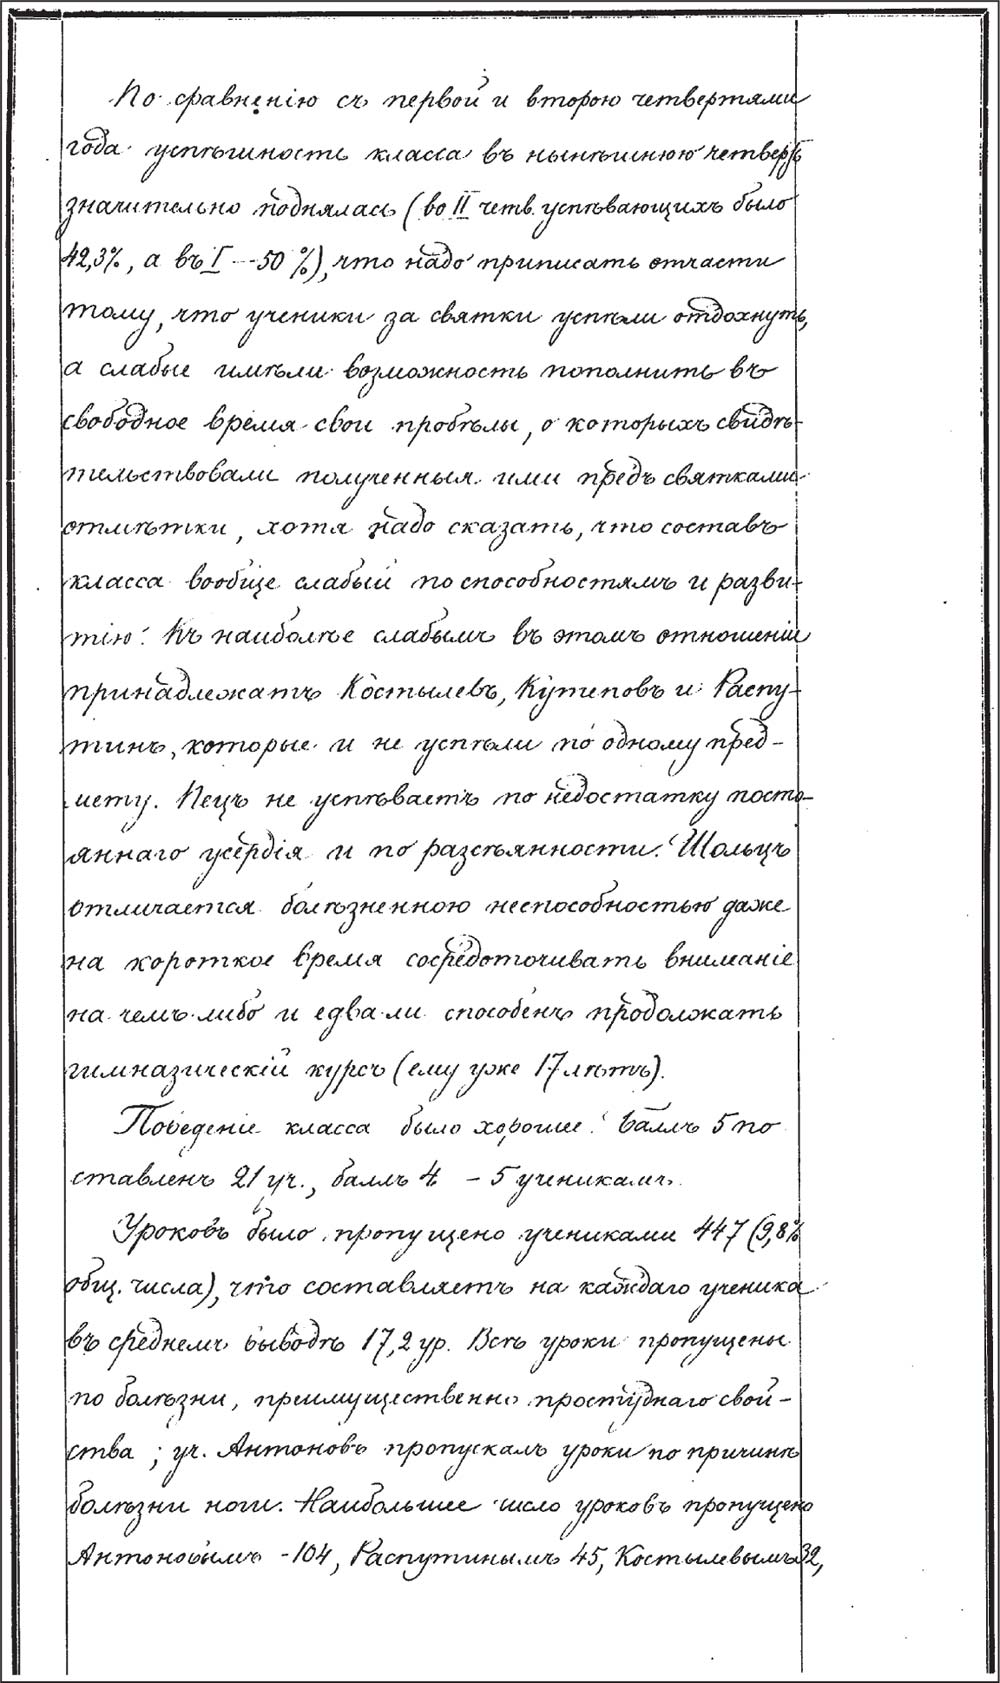 По сравненію съ первой и второю четвертями
года успѣшность класса въ нынѣшнюю четверть
значительно поднялась (во II четв. успѣвающихъ было
42,3%, а въ I — 50%), что надо приписать отчасти
тому, что ученики за святки успѣли отдохнуть,
а слабые имѣли возможность пополнить въ
свободное время свои пробѣлы, о которыхъ свидѣ-
тельствовали полученныя ими предъ святками
отмѣтки, хотя надо сказать, что составъ
класса вообще слабый по способностямъ и разви-
тію. Къ наиболѣе слабымъ въ этомъ отношеніи
принадлежатъ Костылевъ, Кутеповъ и Распу-
тинъ, которые и не успѣли по одному пред-
мету. Пецъ не успѣваетъ по недостатку посто-
яннаго усердія и по разсѣянности. Шольцъ
отличается болѣзненною неспособностью даже
на короткое время сосредоточивать вниманіе
на чемъ-либо и едва ли способенъ продолжать
гимназическій курсъ (ему уже 17 лѣтъ).
Поведеніе класса было хорошее. Баллъ 5 по
ставленъ 21 уч., баллъ 4 – 5 ученикамъ.
Уроковъ было пропущено учениками 447 (9,8%
общ. числа), что составляетъ на каждаго ученика
въ среднемъ выводѣ 17,2 ур. Всѣ уроки пропущены
по болѣзни, преимущественно простуднаго свой-
ства; уч. Антоновъ пропускалъ уроки по причинѣ
болѣзни ноги. Наибольшее число уроковъ пропущено
Антоновымъ - 104, Распутинымъ 45, Костылевымъ 32,